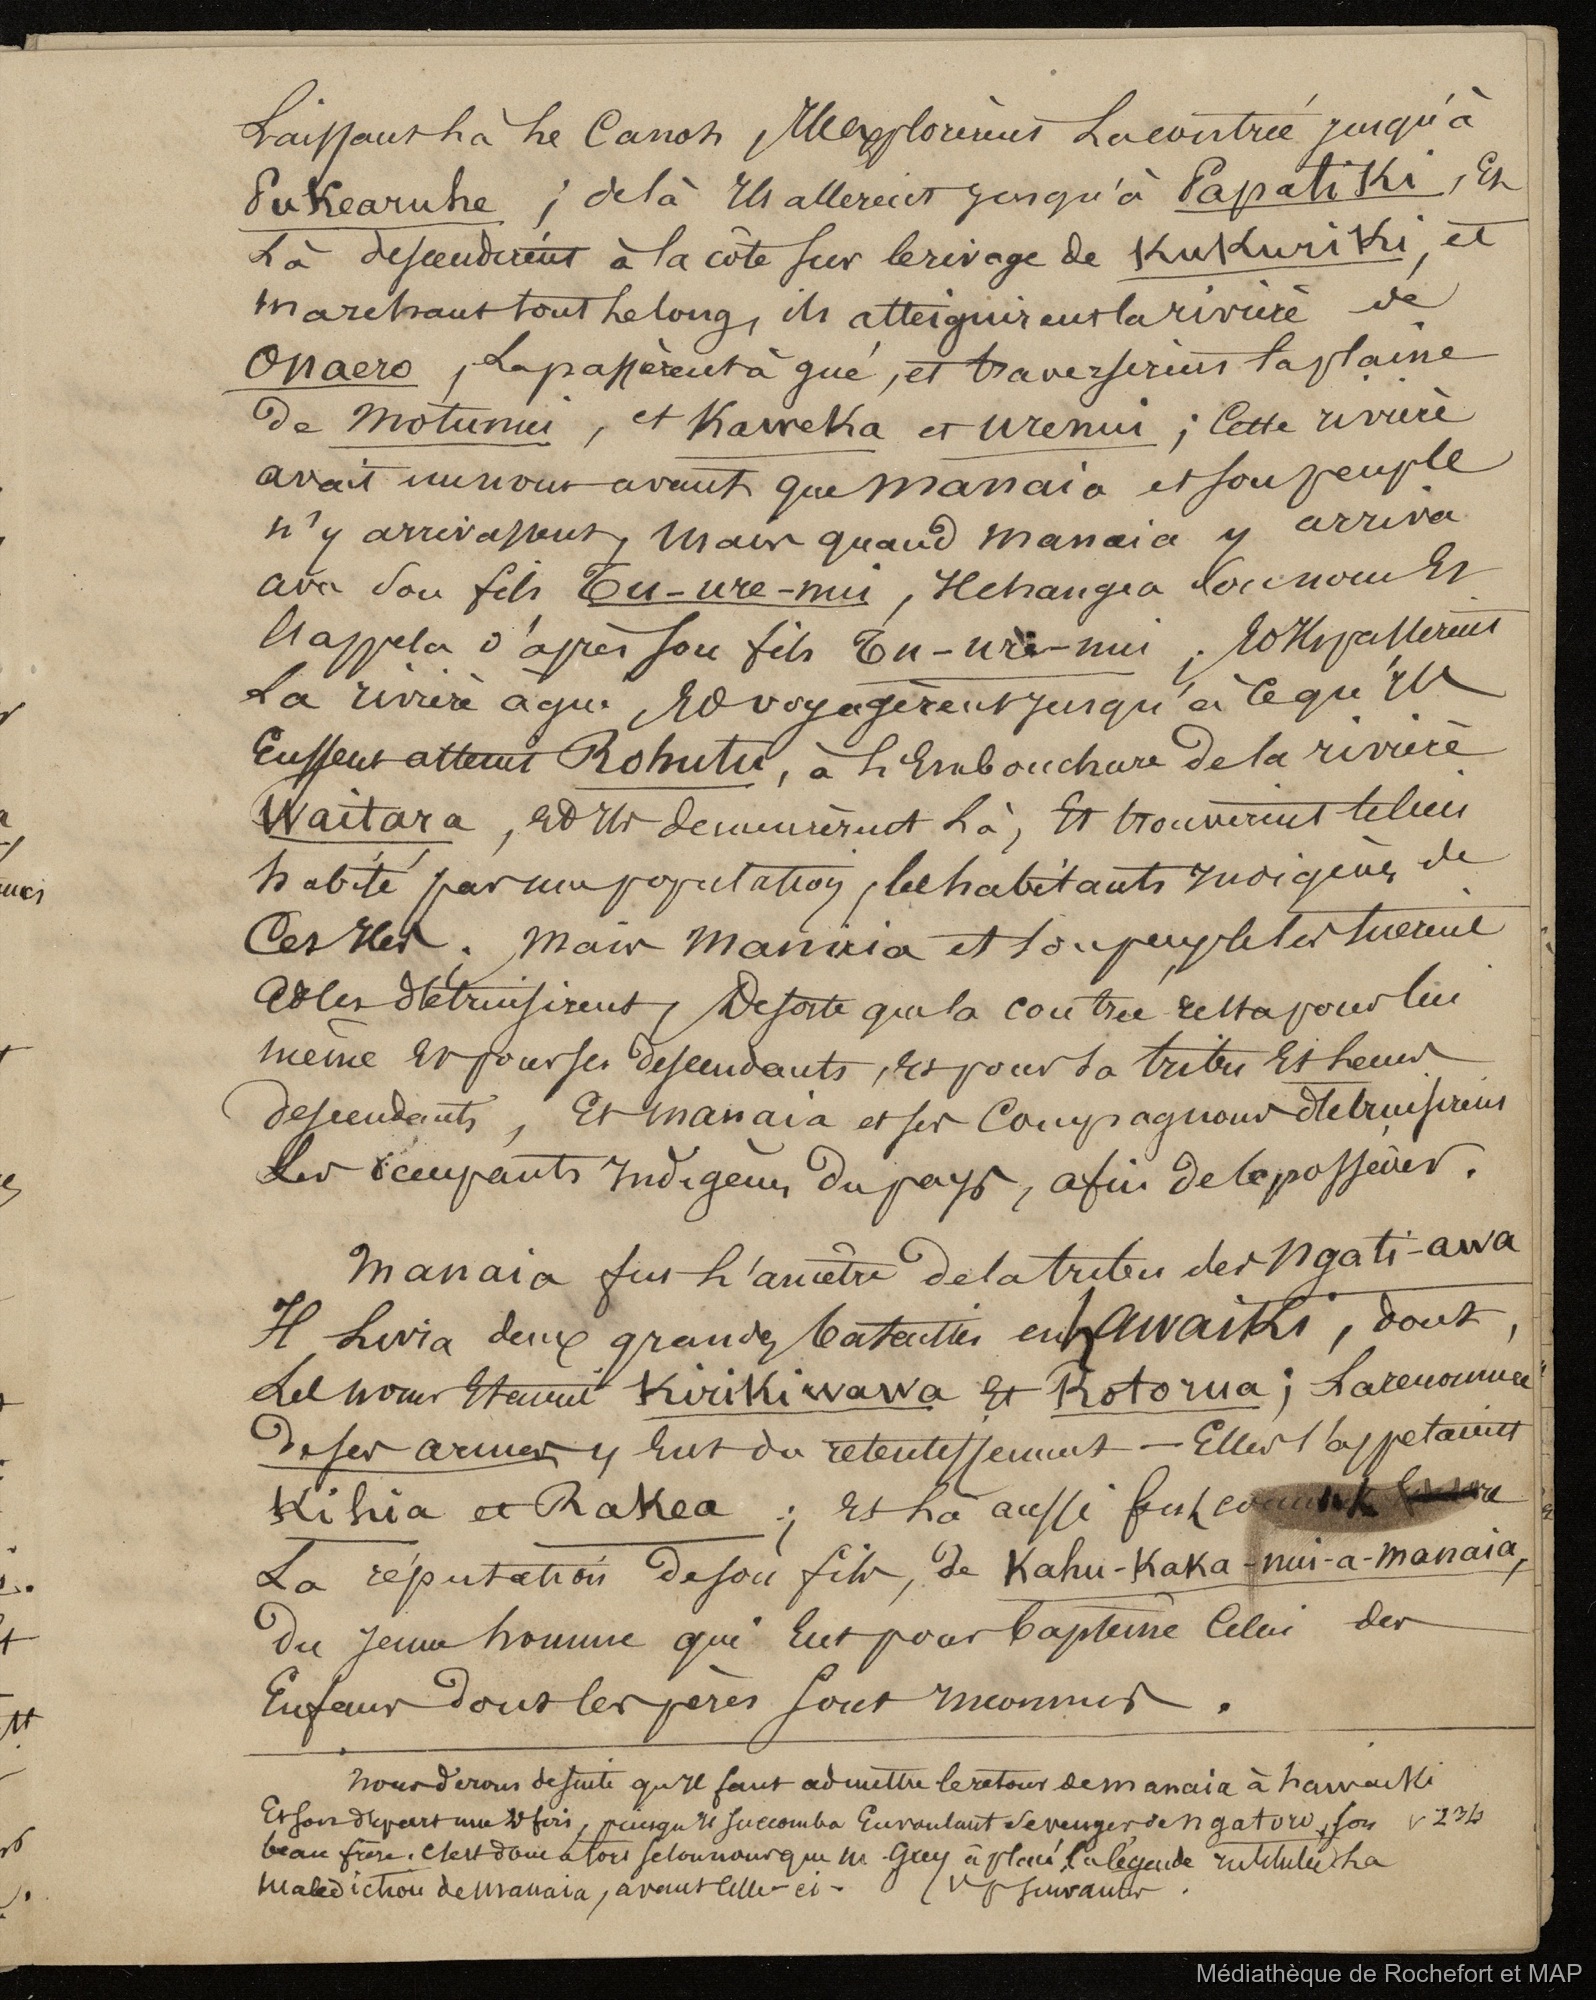 Laissant là le Canot, Ils explorèrent la contrée jusqu'à
Pukearuhe ; de là Ils allèrent jusqu'à Papatiki, Et
là descendirent à la côte sur le rivage de Kukuriki, et
marchant tout le long, ils atteignirent la rivière de
Onaero, La passèrent à gué, et traversèrent la plaine
de Motunui, et Kaweka et Urenui ; Cette rivière
avait un nom avant que Manaia et son peuple
n'y arrivassent, Mais quand Manaia y arriva
avec son fils Tu-ure-nui, Il changea son nom Et
l'appela d'après son fils Tu-ure-nui ; Et Ils passèrent
La rivière à gué, Et voyagèrent jusqu'à ce qu'Ils
Eussent atteint Rohutu, à l'Embouchure de la rivière
Waitara, Et Ils demeurèrent là, Et trouvèrent le lieu
habité par une population, les habitants Indigènes de
Ces Iles. Mais Manaia et son peuple les tuèrent
Et les détruisirent, De sorte que la contrée resta pour lui
même Et pour ses descendants, Et pour sa tribu Et leurs
descendants, Et Manaia et ses Compagnons détruisirent
Les occupants Indigènes du pays, afin de le posséder.
Manaia fut l'ancêtre de la tribu des Ngati-awa
Il livra deux grandes batailles en hawaiki, dont,
Les noms Etaient Kirikiwawa Et Rotorua ; La renommée
De ses armes y Eut du retentissement — Elles s'appelaient
Kihia et Rakea ; Et là aussi fut
La réputation de son fils, de Kahu-Kaka-nui-a-Manaia,
Du jeune homme qui Eut pour baptême Celui des
Enfants dont les pères sont Inconnus.
Nous dirons de suite qu'Il faut admettre le retour de Manaia à hawaiki
Et son départ une 2e fois, puisqu'Il succomba En voulant se venger de Ngatoro, son v 234
beau frère. C'est donc à tort selon nous que M. Grey a placé la légende intitulée La
Malédiction de Manaia, avant celle-ci. (V p suivantes.